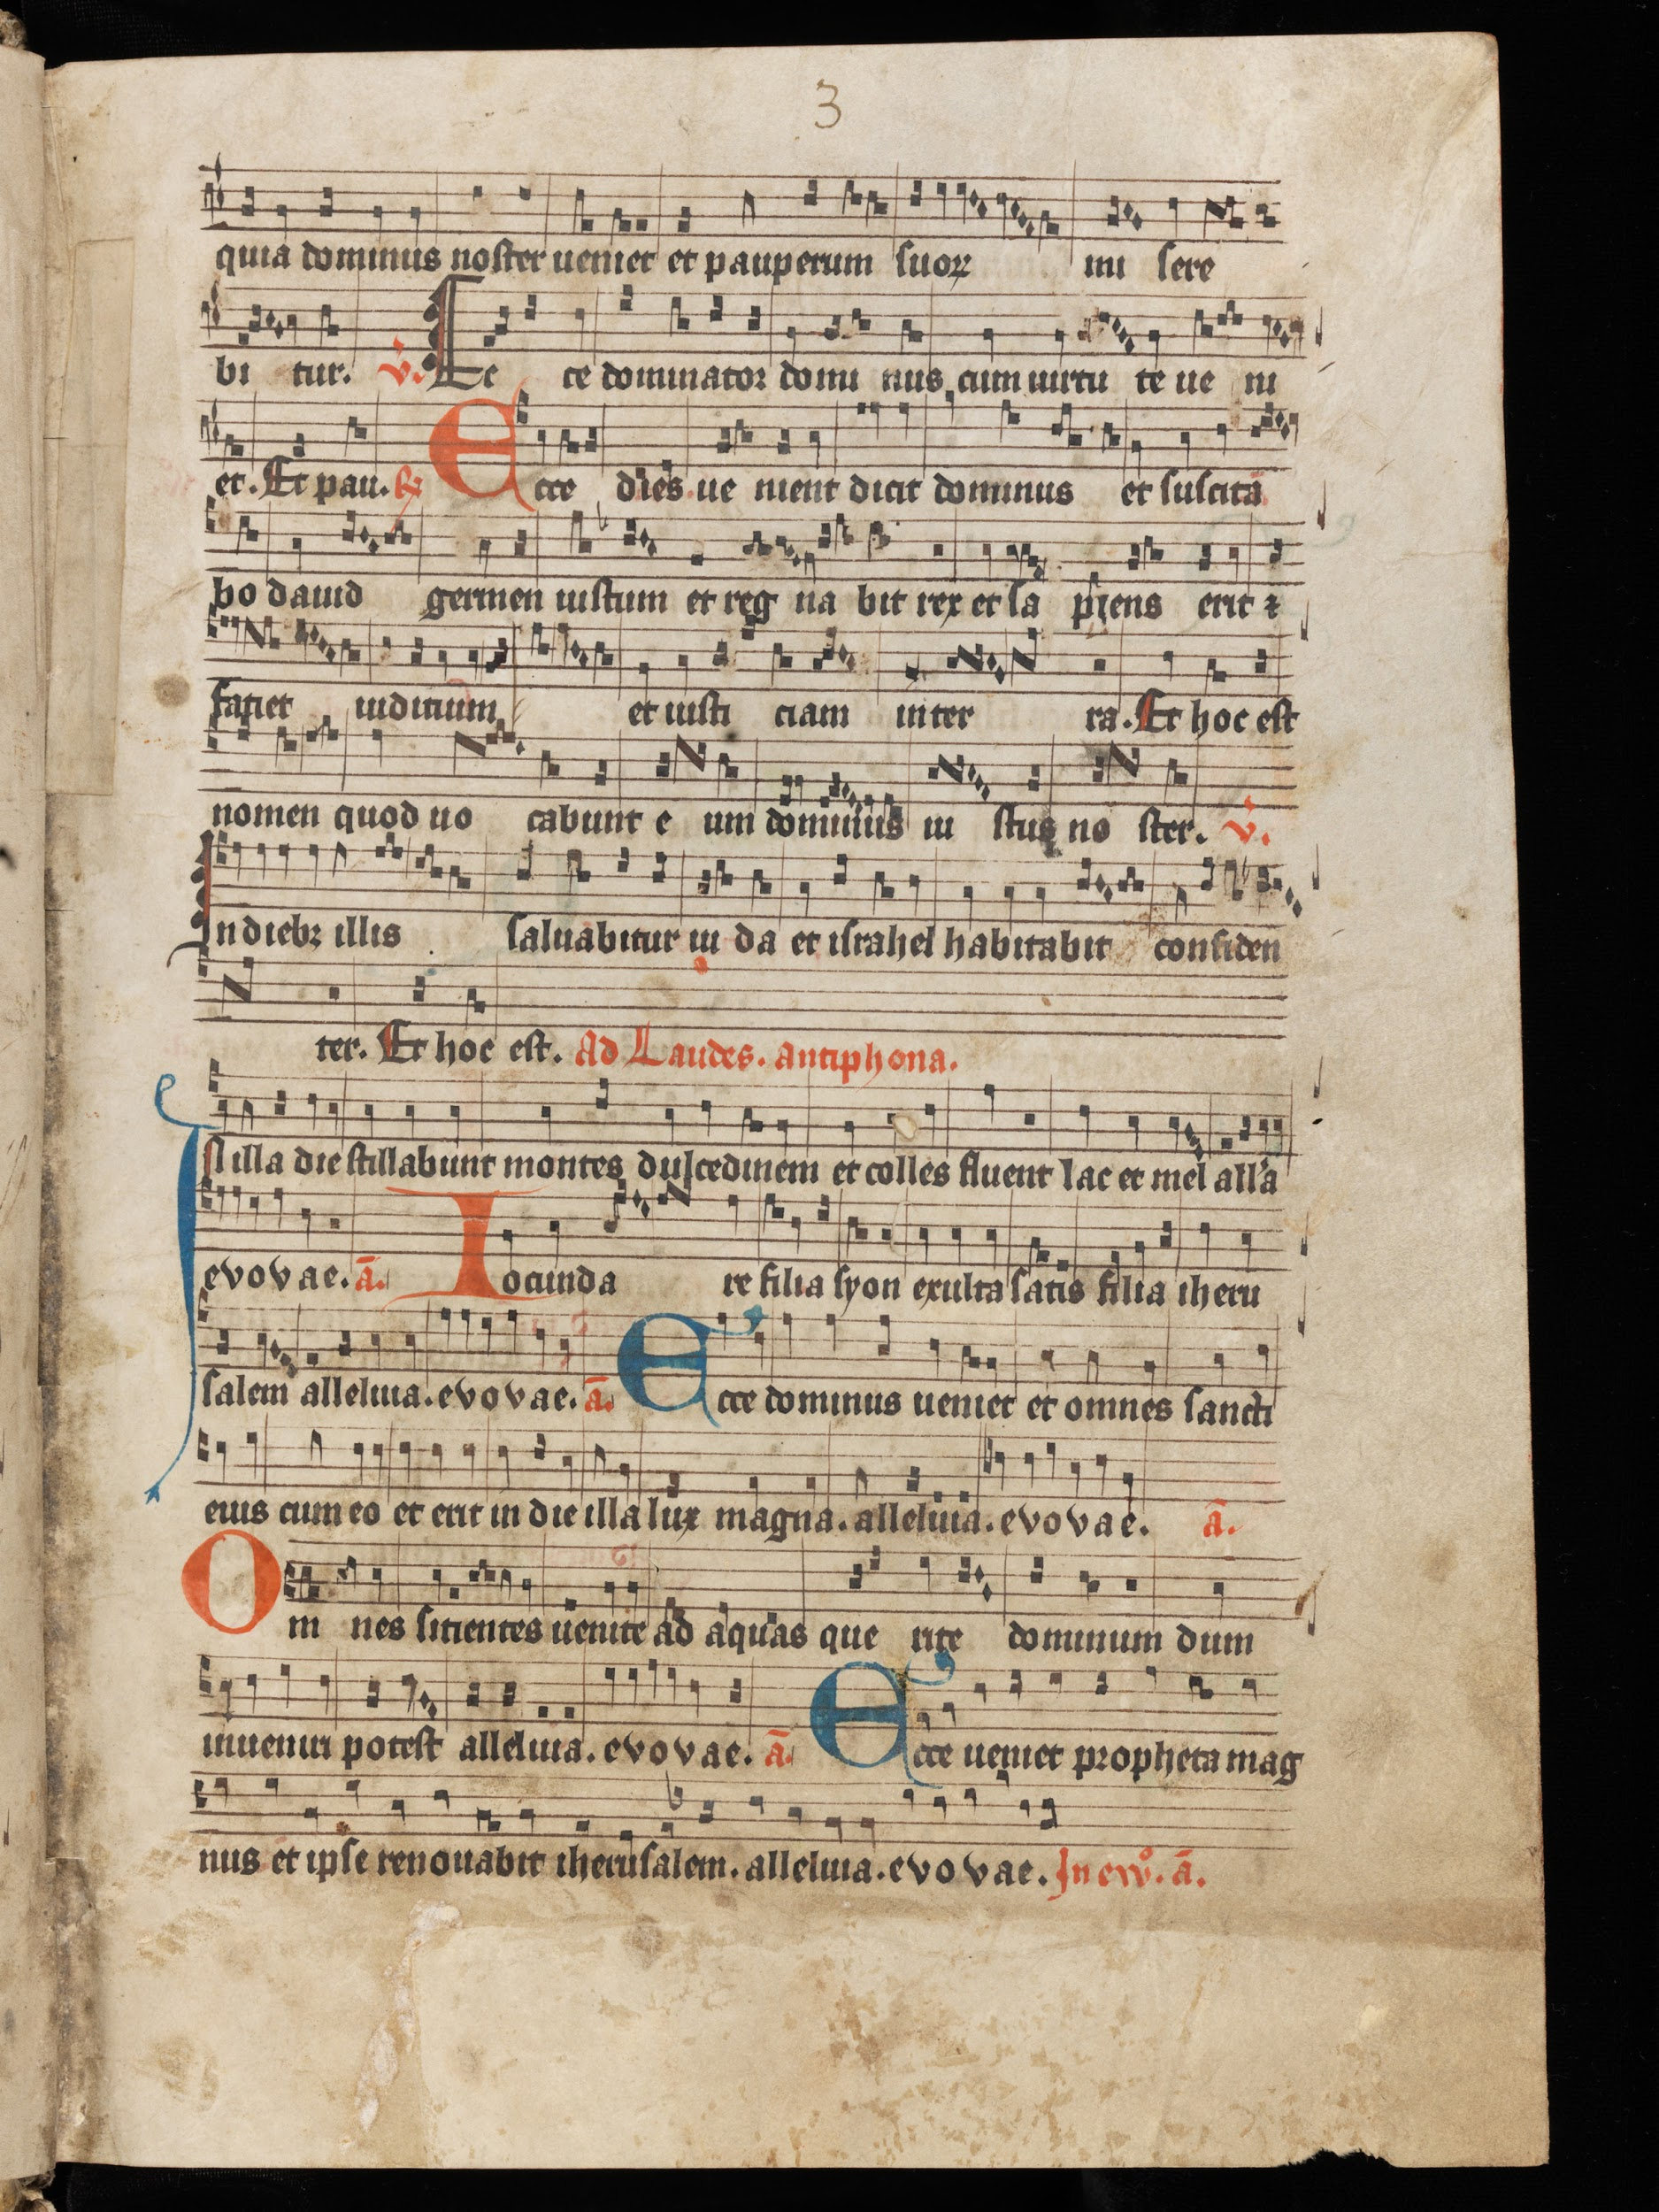 3
quia dominus noster ueniet et pauperum suoꝝ mi sere
bi tur. v̂. Ec ce dominator domi nus cum uirtu te ue ni
et. Et pau. ℟ Ecce dies ue nient dicit dominus et suscita
bo dauid germen iustum et reg na bit rex et sa piens erit ⁊
faciet iudicium et iusti ciam in ter ra. Et hoc est
nomen quod uo cabunt e um dominus iu stus no ster. v̂.
In diebꝫ illis saluabitur iu da et israhel habitabit confiden
ter. Et hoc est. Ad Laudes. Antiphona.
In illa die stillabunt montes dulcedinem et colles fluent lac et mel all'a
evovae. ā. Iocunda re filia syon exulta satis filia iheru
salem alleluia. evovae. ā. Ecce dominus ueniet et omnes sancti
eius cum eo et erit in die illa lux magna. alleluia. evovae. ā.
Om nes sitientes uenite ad aquas que rite dominum dum
inueniri potest alleluia. evovae. ā. Ecce ueniet propheta mag
nus et ipse renouabit iherusalem. alleluia. evovae. In eẘ. ā.